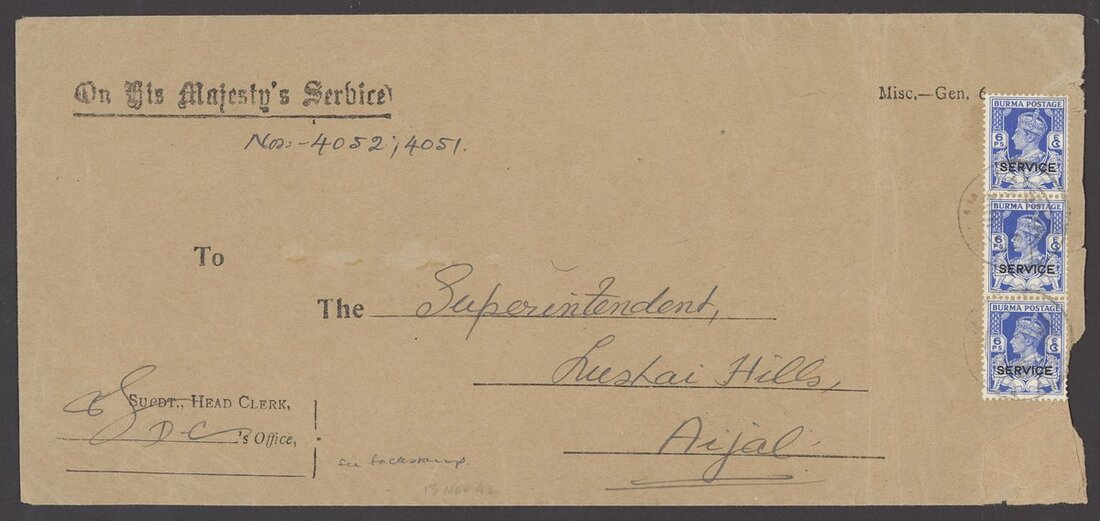 On His Majesty's Service
Misc.—Gen. 6
Nos:-4052; 4051.
BURMA POSTAGE
6 PS.
SERVICE
BURMA POSTAGE
6 PS.
SERVICE
BURMA POSTAGE
6 PS.
SERVICE
To
The Superintendent,
Lushai Hills,
Aijal
SUPDT., HEAD CLERK,
D-C 's Office,
see backstamp.
13 NOV 42